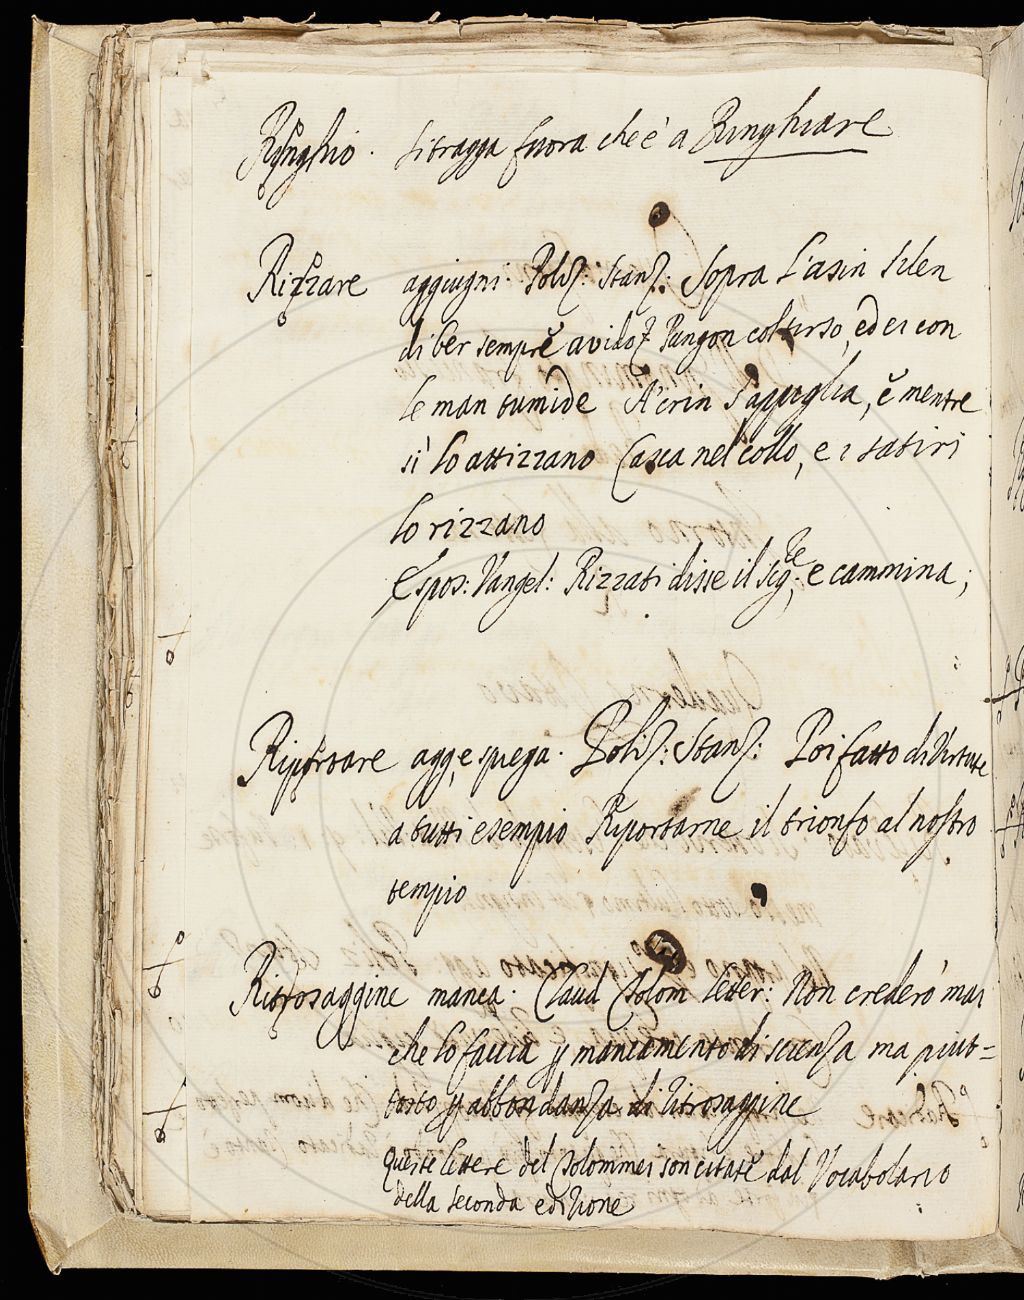 Ringhio. si tragga fuora che è a Ringhiare
Rizzare aggiugni. Poliz: Stanz: Sopra l'asin Silen
di ber sempre avido Pungon col tirso, ed ei con
le man tumide A' crin s'appiglia, e mentre
sì lo attizzano Casca nel collo, e i satiri
lo rizzano
Espos: Vangel: Rizzati disse il Sig:re, e cammina;
Riportare agg, e spiega. Poliz: Stanz: Poi fatto di Virtute
a tutti esempio Riportarne il trionfo al nostro
tempio
Ritrosaggine manca. Claud Tolom letter: Non crederò mai
che lo faccia p mancamento di scienza ma piut=
tosto p abbondanza di ritrosaggine
queste lettere del Tolommei son citate dal Vocabolario
della seconda edizione